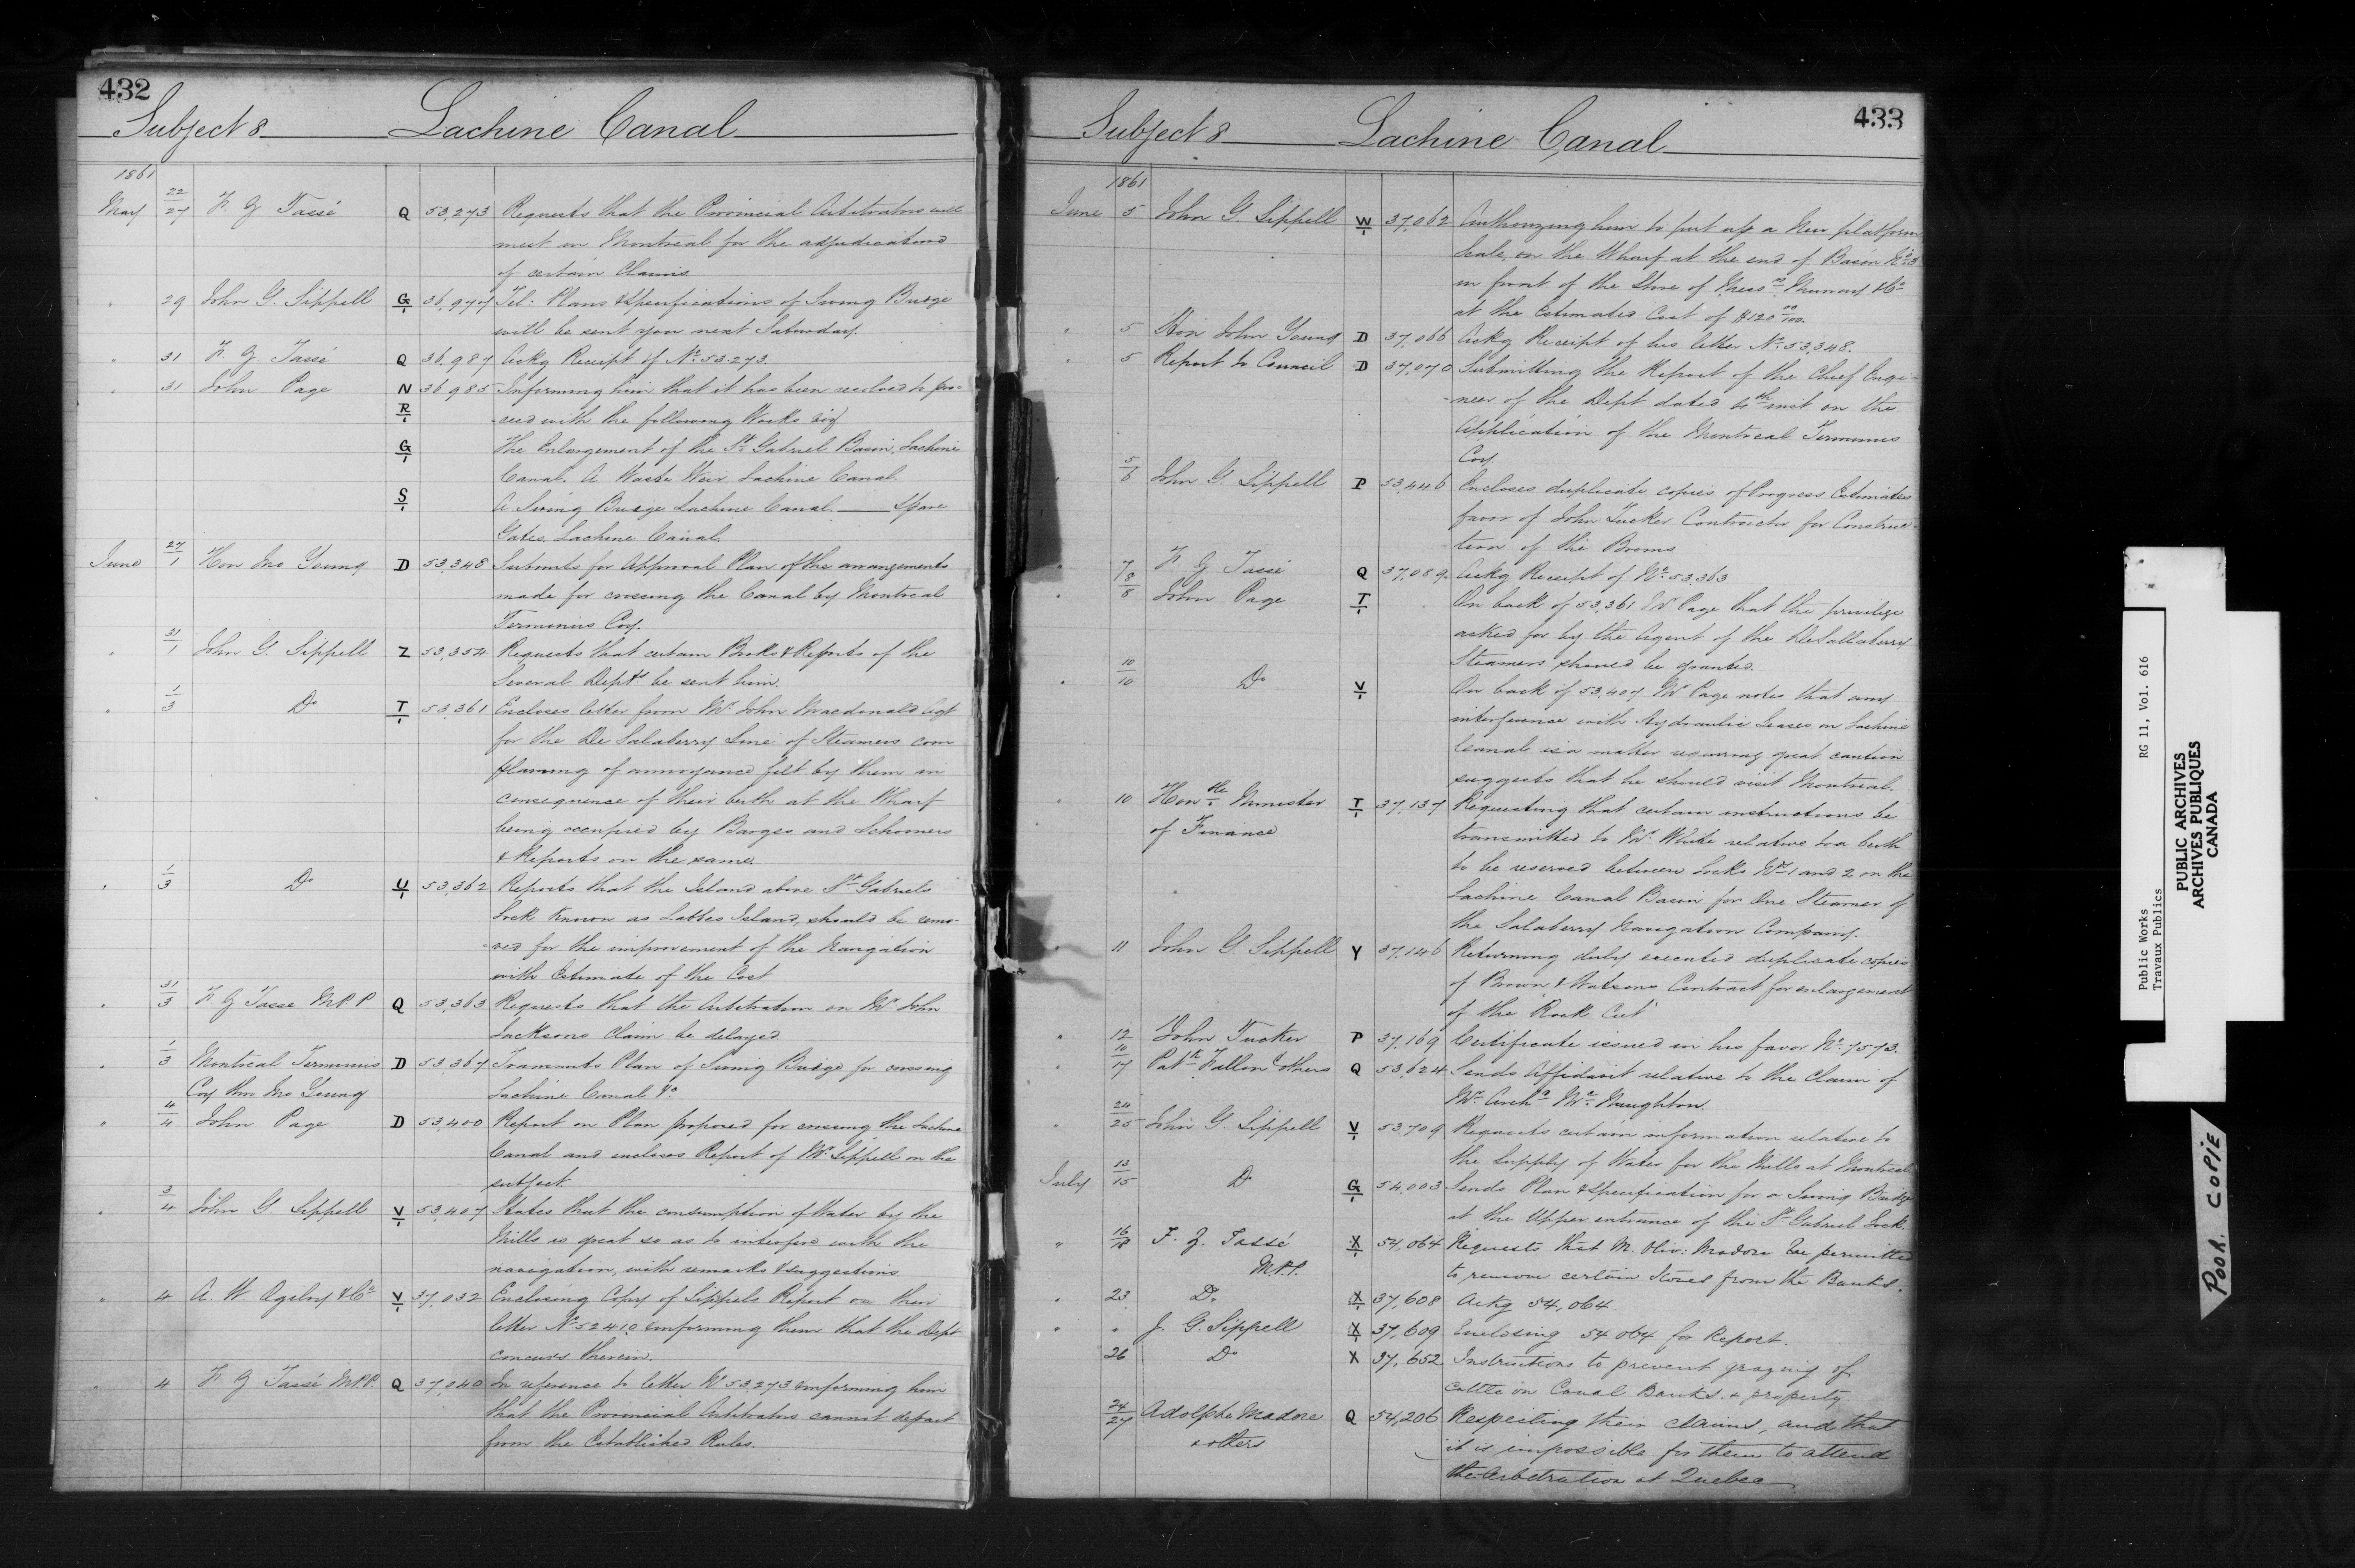 432
Subject 8 Lachine Canal
1861
May 22/27 F. Z. Tassé Q 53,273 Requests that the Provincial Arbitrators will
meet in Montreal for the adjudication
of certain Claims
" 29 John G. Sippell G/1 36,977 Tel: Plans & Specifications of Swing Bridge
will be sent you next Saturday.
" 31 F. Z. Tassé Q 36,987 Ackg Receipt of No. 53.273.
" 31 John Page N 36985 Informing him that it has been resolved to pro-
R/1 ceed with the following Works viz
G/1 The Enlargement of the St. Gabriel Basin, Lachine
Canal. A Waste Weir Lachine Canal.
S/1 A Swing Bridge Lachine Canal. — Spare
Gates, Lachine Canal.
June 27/1 Hon Jno Young D 53,348 Submits for Approval Plan of the arrangements
made for crossing the Canal by Montreal
Terminus Coy.
" 31/1 John G. Sippell Z 53,354 Requests that certain Books & Reports of the
Several Depts. be sent him.
" 1/3 Do T/1 53,361 Encloses letter from Mr. John Macdonald Agt
for the De Salaberry Line of Steamers com
plaining of annoyance felt by them in
consequence of their berth at the Wharf
being occupied by Barges and Schooners
& Reports on the same
" 1/3 Do U/1 53,362 Reports that the Island above St. Gabriels
Lock known as Island, should be remo-
-ved for the improvement of the Navigation
with Estimate of the Cost
" 31/3 F. Z Tasse M.P.P Q 53,363 Requests that the Arbitration on Mr. John
Jacksons Claim be delayed
" 1/3 Montreal Terminus D 53,367 Transmits Plan of Swing Bridge for crossing
Coy thro Jno Young Lachine Canal &c
" 4/4 John Page D 53,400 Report on Plan proposed for crossing the Lachine
Canal and encloses Report of Mr. Sippell on the
subject.
" 3/4 John G. Sippell V/1 53,407 States that the consumption of Water by the
Mills is great so as to interfere with the
navigation, with remarks & suggestions
" 4 A. W. Ogilvy & Co V/1 37,032 Enclosing Copy of Sippels Report on their
letter No. 52410 informing them that the Dept
concurs therein.
" 4 F. Z Tassé M.P.P. Q 37,040 In reference to letter No 53,273 informing him
that the Provincial Arbitrators cannot depart
from the Established Rules.
433
Subject 8 Lachine Canal
1861
June 5 John G. Sippell W/1 37,062 Authorizing him to put up a New platform
Scale, on the Wharf at the end of Basin No. 3
in front of the Store of Messrs. Murray & Co
at the Estimated Cost of $120 00/100.
" 5 Hon John Young D 37,066 Ackg Receipt of his letter No. 53,348.
" 5 Report to Council D 37,070 Submitting the Report of the Chief Engi-
-neer of the Dept dated 4th inst on the
Application of the Montreal Terminus
Coy.
" 5/6 John G. Sippell P 53,446 Encloses duplicate copies of Progress Estimates
favor of John Tucker Contractor for Construc-
-tion of the Booms
" 7 F. Z Tassé Q 37,089. Ackg Receipt of No. 53,363
" 8/8 John Page T/1 On back of 53,361 Mr Page that the privilege
asked for by the Agent of the DeSallaberry
Steamers should be granted.
" 10/10 Do V/1 On back of 53,407 Mr Page notes that any
interference with Hydraulic Leases on Lachine
Canal is a matter requiring great caution
suggests that he should visit Montreal.
" 10 Honble. Minister T/1 37,137 Requesting that certain instructions be
of Finance transmitted to Mr. White relative to a berth
to be reserved between Locks Nos. 1 and 2 on the
Lachine Canal Basin for One Steamer of
the Salaberry Navigation Company.
" 11 John G Sippell Y 37,146 Returning duly executed duplicate copies
of Brown & Watsons Contract for enlargement
of the "Rock Cut"
" 12 John Tucker P 37,169 Certificate issued in his favor No. 7573.
" 10/17 Patk. Fallon & others Q 53,624 Sends Affidavit relative to the Claim of
Mr. Archd. McNaughton.
" 24/25 John G. Sippell V/1 53,709 Requests certain information relative to
the Supply of Water for the Mills at Montreal
July 13/15 Do G/1 54,003 Sends Plan & Specification for a Swing Bridge
at the Upper entrance of the St. Gabriel Lock
" 16/18 F. Z. Tassé X/1 54,064 Requests that M. Oliv: Madore be permitted
M.P.P. to remove certain Stones from the Banks.
" 23 Do. X/1 37,608 Ackg 54,064.
" " J. G. Sippell X/1 37,609 Enclosing 54 064 for Report.
26 Do X 37,652 Instructions to prevent grazing of
cattle on Canal Banks & property.
24/27 Adolphe Madore Q 54,206 Respecting their claims, and that
& others it is impossible for them to attend
the Arbitration at Quebec
Public Works RG 11, Vol. 616
Travaux Publics
PUBLIC ARCHIVES
ARCHIVES PUBLIQUES
CANADA
POOR COPIE